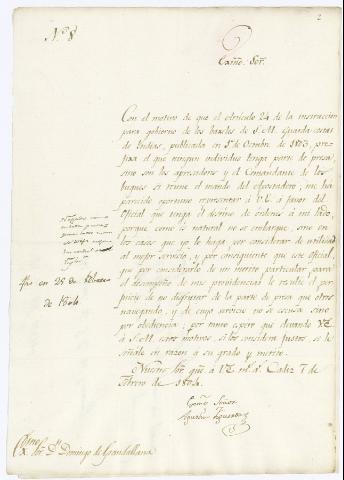 Nº 8
2
Exmo. Sor.
Con el motivo de que el Articulo 24 de la instruccion
para gobierno de los baxeles de S. M. Guarda-costas
de Indias, publicada en 1º de Octubre de 1803, pre-
fixa el que ningun individuo tenga parte de presa
sino son los apresadores y el Comandante de los
buques si tiene el mando del apostadero; me ha
parecido oportuno representar à V.E. à favor del
Oficial que tenga el destino de ordenes à mi lado,
porque como es natural no se embarque, sino en
los casos que yo lo haga por considerar de utilidad
al mejor servicio; y por consiguiente que este oficial,
que por considerarlo de un merito particular para
el desempeño de mis providencias le resulte el per-
juicio de no disfrutar de la parte de presa que otros
navegando, y de cuyo servicio no se escusa sino
por obediencia; por tanto espero que elevando V.E.
à S. M. estos motivos, si los considera justos, se le
señale en razon à su grado y merito.
Nuestro Sor. gue. à V.E. ms. as. Cadiz 7 de
Febrero de 1804.
Exmo. Señor
Agustin Figueroa
fho en 25 de Febrero
de 1804
Exmo. Sor. Dn. Domingo de Grandallana